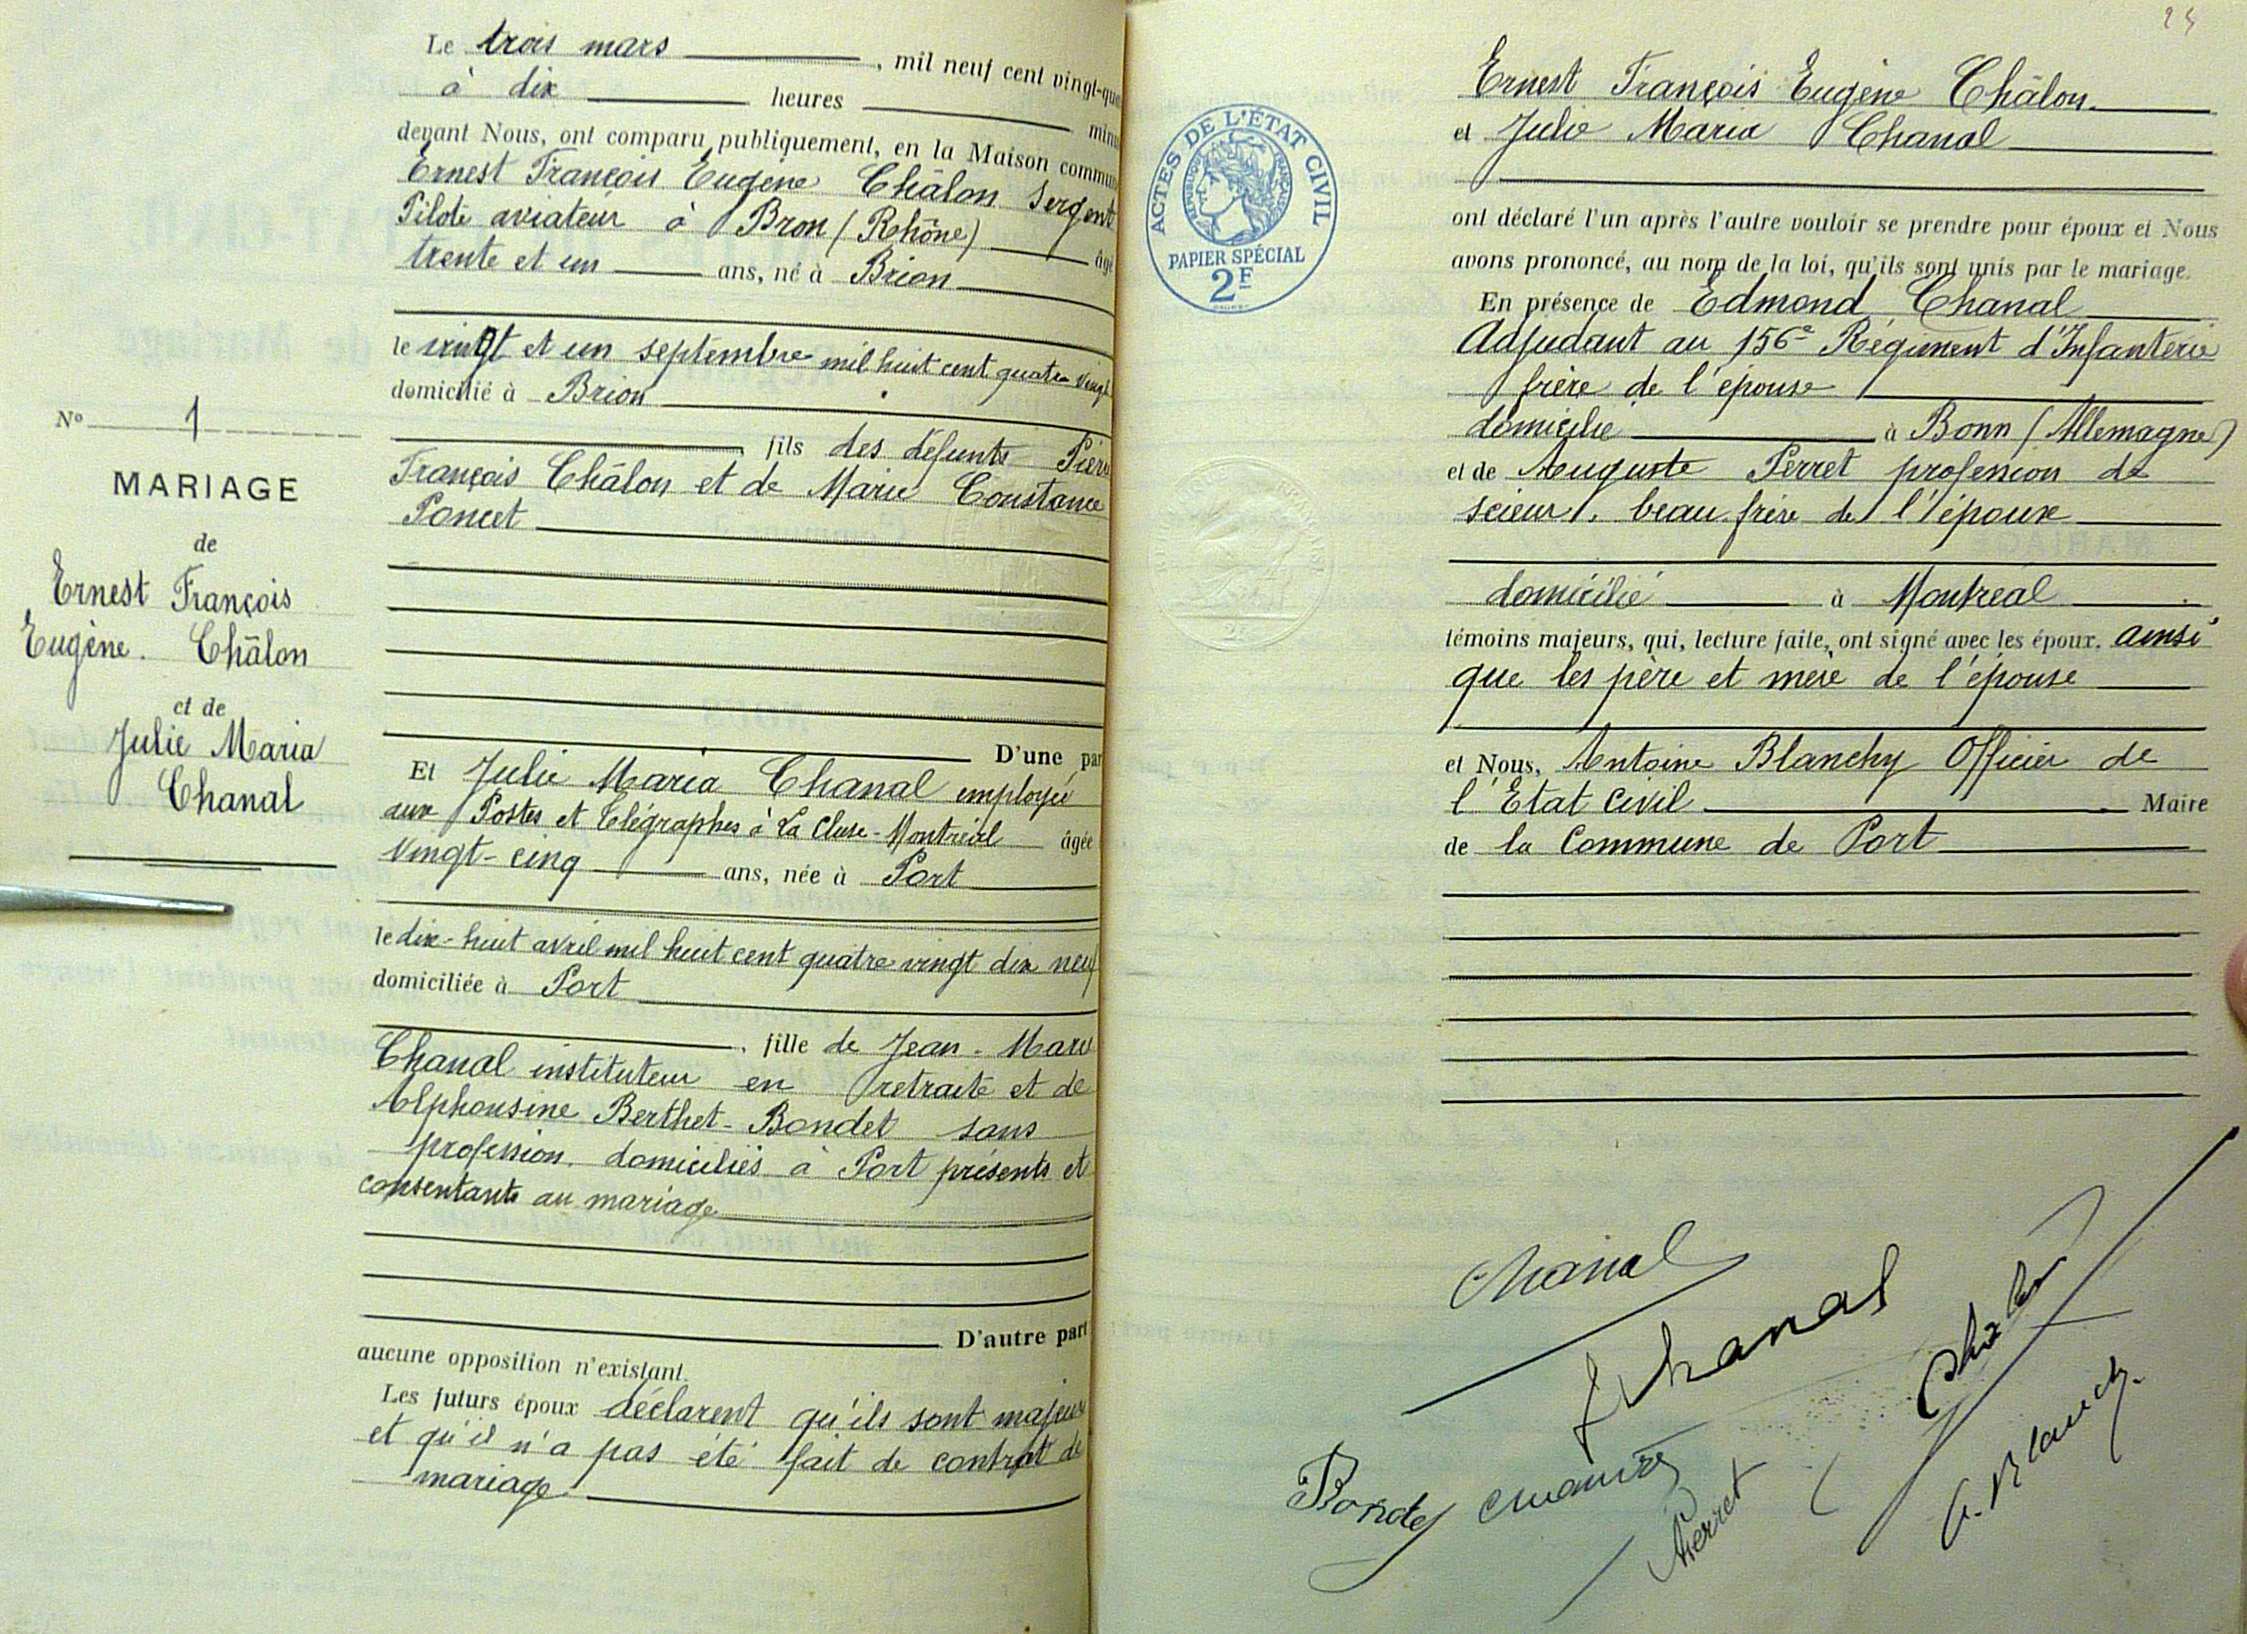 Le trois mars, mil neuf cent vingt-qua
à dix heures minu
devant Nous, ont comparu publiquement, en la Maison commun
Ernest François Eugène Châlon Sergent
Pilote aviateur à Bron (Rhône) âgé
trente et un ans, né à Brion
le vingt et un septembre mil huit cent quatre vingt
domicilié à Brion
fils des défunts Pierre
François Châlon et de Marie Constance
Poncet
D'une par
Nº 1
MARIAGE
de
Ernest François
Eugène. Châlon
et de
Julie Maria
Chanal
Et Julie Maria Chanal employée
aux Postes et Télégraphes à La Cluse-Montréal âgée
vingt-cinq ans, née à Port
le dix-huit avril mil huit cent quatre vingt dix neuf
domiciliée à Port
, fille de Jean-Marie
Chanal instituteur en retraite et de
Alphonsine Berthet-Bondet sans
profession. domiciliés à Port présents et
consentants au mariage
D'autre part
aucune opposition n'existant.
Les futurs époux déclarent qu'ils sont majeurs
et qu'il n'a pas été fait de contrat de
mariage.
ACTES DE L'ÉTAT CIVIL
RÉPUBLIQUE FRANÇAISE
PAPIER SPÉCIAL
2F
Ernest François Eugène Châlon
et Julie Maria Chanal
ont déclaré l'un après l'autre vouloir se prendre pour époux et Nous
avons prononcé, au nom de la loi, qu'ils sont unis par le mariage.
En présence de Edmond Chanal
Adjudant au 156e Régiment d'Infanterie
frère de l'épouse
domicilié à Bonn (Allemagne)
et de Auguste Perret profession de
scieur, beau-frère de l'époux
domicilié à Montréal
témoins majeurs, qui, lecture faite, ont signé avec les époux. ainsi
que les père et mère de l'épouse
et Nous, Antoine Blanchy Officier de
l'Etat civil Maire
de la Commune de Port
Chanal
Chanal
Châlon
Bondet
Perret
A. Blanchy